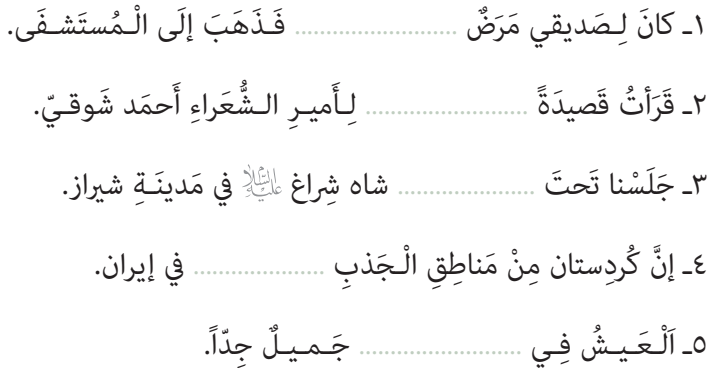 ١ـ كانَ لِصَديقي مَرَضٌ ........................ فَذَهَبَ إلَى الْمُستَشفَى.
٢ـ قَرَأتُ قَصيدَةً ........................ لِأَميرِ الشُّعَراءِ أَحمَد شَوقيّ.
٣ـ جَلَسْنا تَحتَ .................... شاه شِراغ عَلَيْهِ السَّلَامُ في مَدينَةِ شيراز.
٤ـ إنَّ كُردِستان مِنْ مَناطِقِ الْجَذبِ ................... في إيران.
٥ـ اَلْعَيشُ فِي ........................ جَميلٌ جِدّاً.